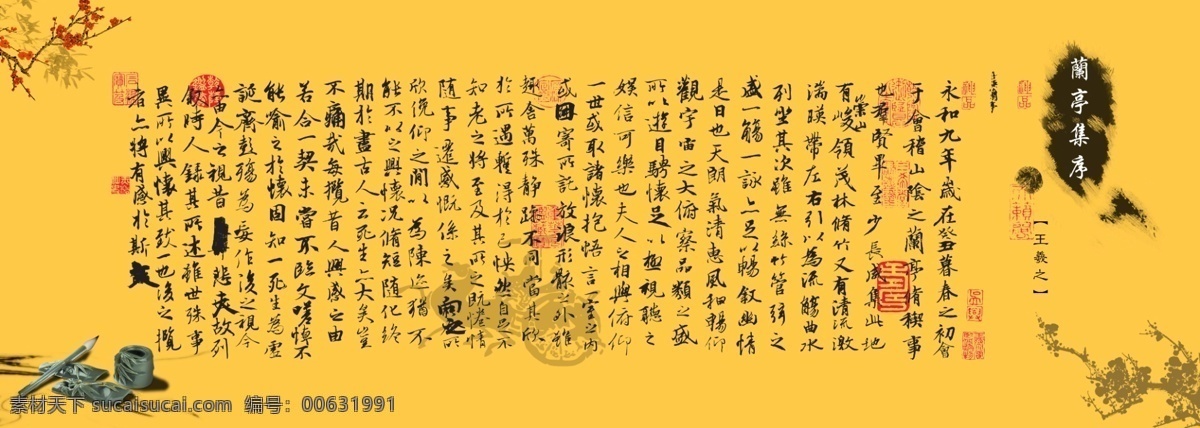 蘭亭集序
【王羲之】
永和九年歲在癸丑暮春之初會
于會稽山陰之蘭亭脩稧事
也羣賢畢至少長咸集此地
崇山
有峻領茂林脩竹又有清流激
湍暎帶左右引以為流觴曲水
列坐其次雖無絲竹管弦之
盛一觴一詠亦足以暢敘幽情
是日也天朗氣清惠風和暢仰
觀宇宙之大俯察品類之盛
所以遊目騁懷足以極視聽之
娛信可樂也夫人之相與俯仰
一世或取諸懷抱悟言一室之內
或因寄所託放浪形骸之外雖
趣舍萬殊靜躁不同當其欣
於所遇暫得於己怏然自足不
知老之將至及其所之既惓情
隨事遷感慨係之矣向之所
欣俛仰之閒以為陳迹猶不
能不以之興懷況脩短隨化終
期於盡古人云死生亦大矣豈
不痛哉每攬昔人興感之由
若合一契未嘗不臨文嗟悼不
能喻之於懷固知一死生為虛
誕齊彭殤為妄作後之視今
亦由今之視昔悲夫故列
敘時人錄其所述雖世殊事
異所以興懷其致一也後之攬
者亦將有感於斯文
素材天下 sucaisucai.com 编号：00631991